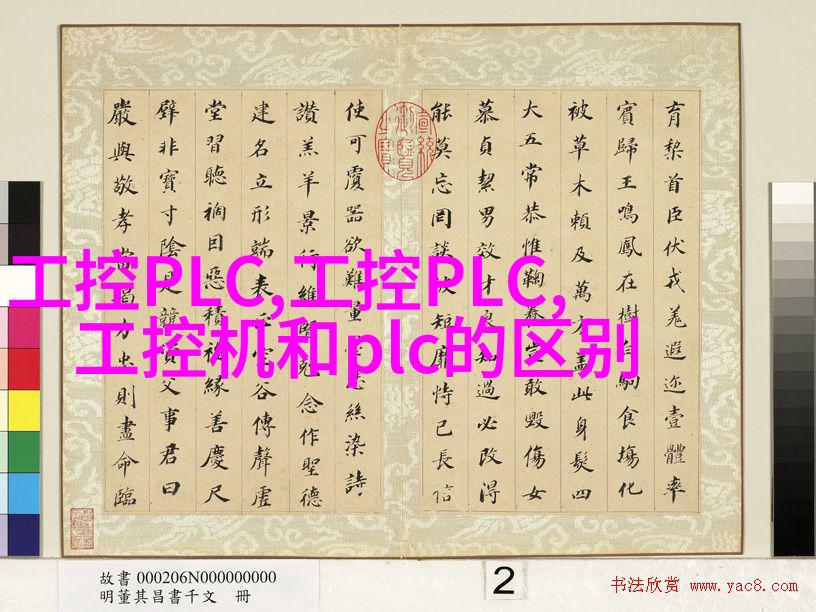 育黎首臣伏戎羌遐迩壹體率
賓歸王鳴鳳在樹白駒食場化
被草木賴及萬方蓋此身髮四
大五常恭惟鞠養豈敢毀傷女
慕貞絜男效才良知過必改得
能莫忘罔談彼短靡恃己長信
使可覆器欲難量墨悲絲染詩
讚羔羊景行維賢剋念作聖德
建名立形端表正空谷傳聲虛
堂習聽禍因惡積福緣善慶尺
璧非寶寸陰是競資父事君曰
嚴與敬孝當竭力忠則盡命臨
工控PLC,工控PLC,
工控机和plc的区别
故書 000206N000000000
明董其昌書千文 冊
2
书法欣赏 www.yac8.com